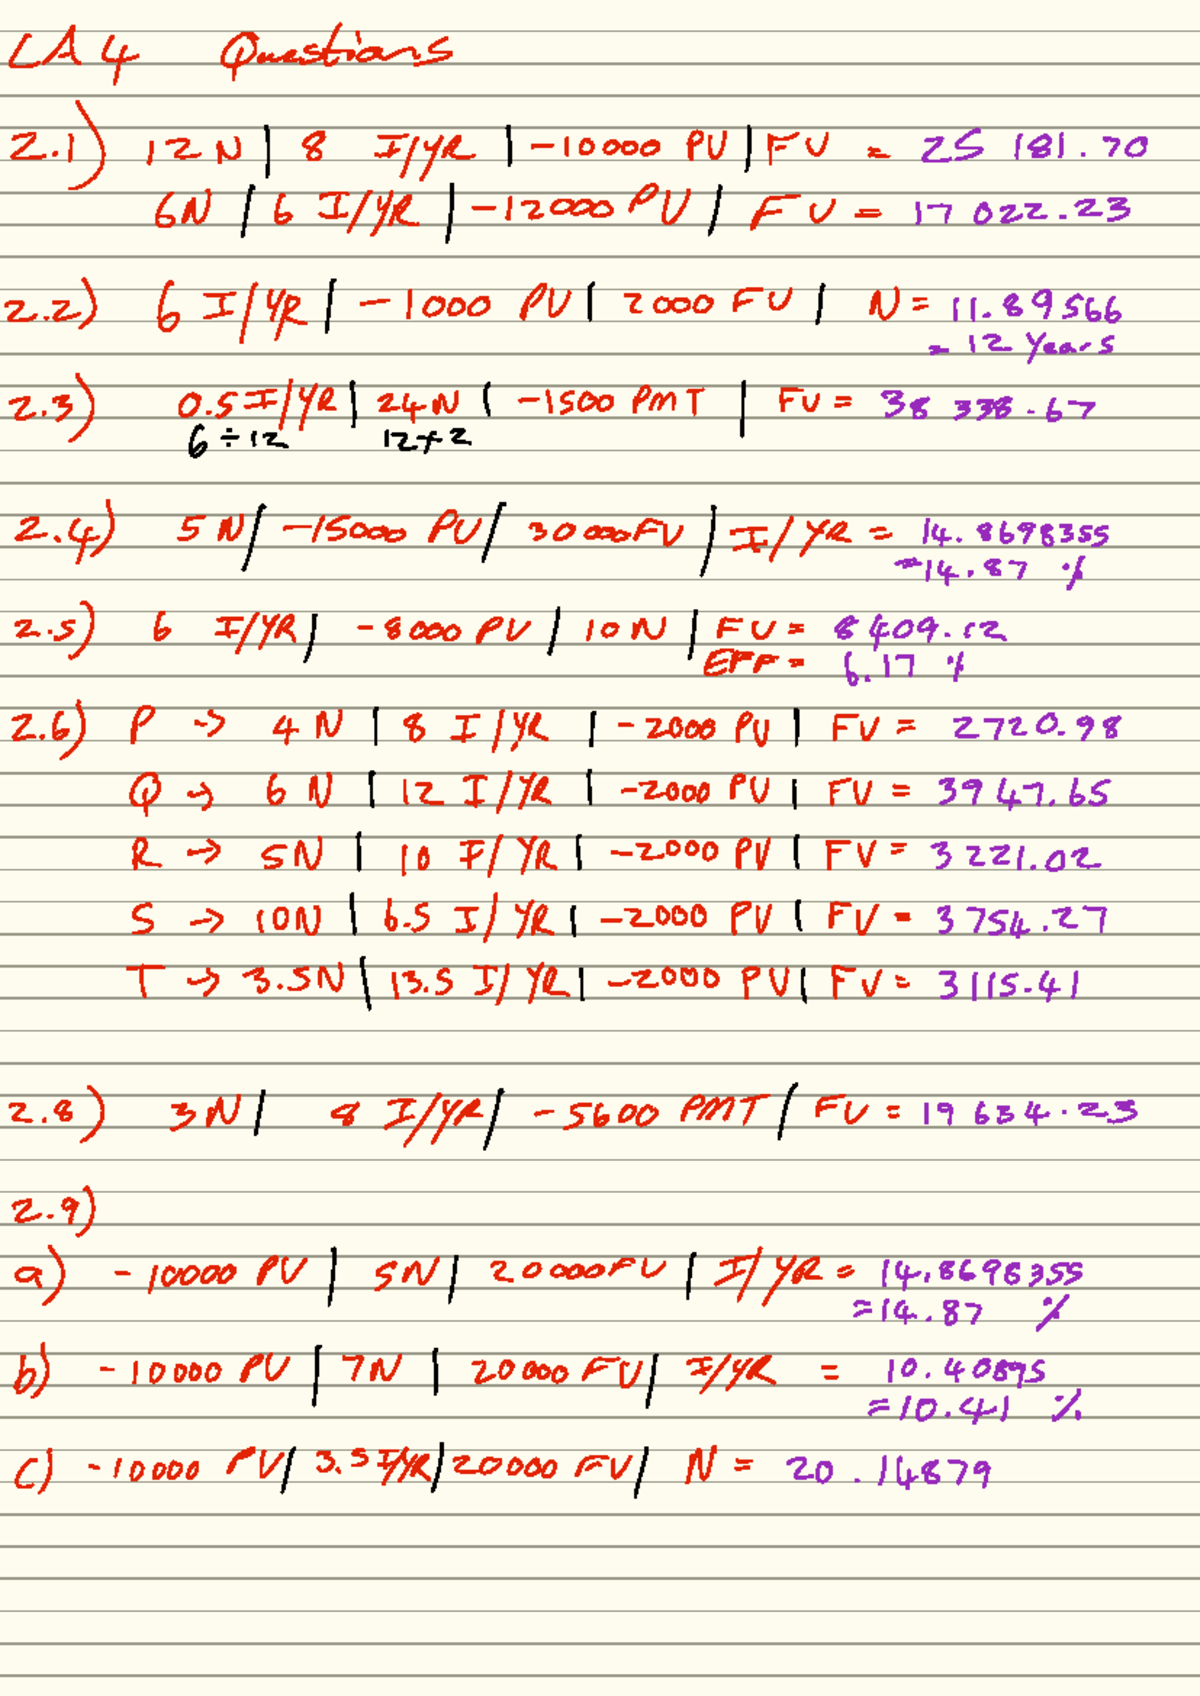 LA 4 Questions
2.1) 12 N | 8 I/YR | -10000 PV | FV = 25 181.70
6N | 6 I/YR | -12000 PV | FV = 17 022.23
2.2) 6 I/YR | -1000 PV | 2000 FV | N = 11.89566
= 12 Years
2.3) 0.5 I/YR | 24 N | -1500 PMT | FV = 38 338.67
6 ÷ 12 12 x 2
2.4) 5 N | -15000 PV | 30000 FV | I/YR = 14.8698355
= 14.87 %
2.5) 6 I/YR | -8000 PV | 10 N | FV = 8 409.12
EFF = 6.17 %
2.6) P → 4 N | 8 I/YR | -2000 PV | FV = 2720.98
Q → 6 N | 12 I/YR | -2000 PV | FV = 3947.65
R → 5N | 10 I/YR | -2000 PV | FV = 3221.02
S → 10N | 6.5 I/YR | -2000 PV | FV = 3754.27
T → 3.5N | 13.5 I/YR | -2000 PV | FV = 3115.41
2.8) 3 N | 8 I/YR | -5600 PMT | FV = 19 634.23
2.9)
a) -10000 PV | 5N | 20000 FV | I/YR = 14.8698355
= 14.87 %
b) -10000 PV | 7N | 20000 FV | I/YR = 10.40895
= 10.41 %
c) -10000 PV | 3.5 I/YR | 20000 FV | N = 20.14879